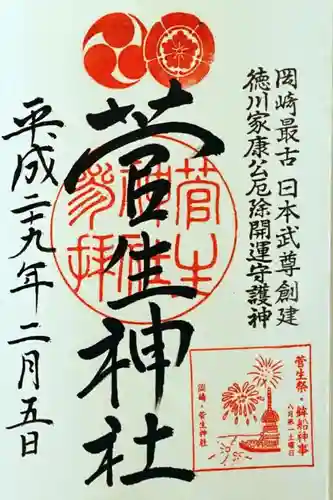 岡崎最古 日本武尊創建
徳川家康公厄除開運守護神
菅生神社
平成二十九年二月五日
菅生祭・鉾船神事
八月第一土曜日
岡崎・菅生神社